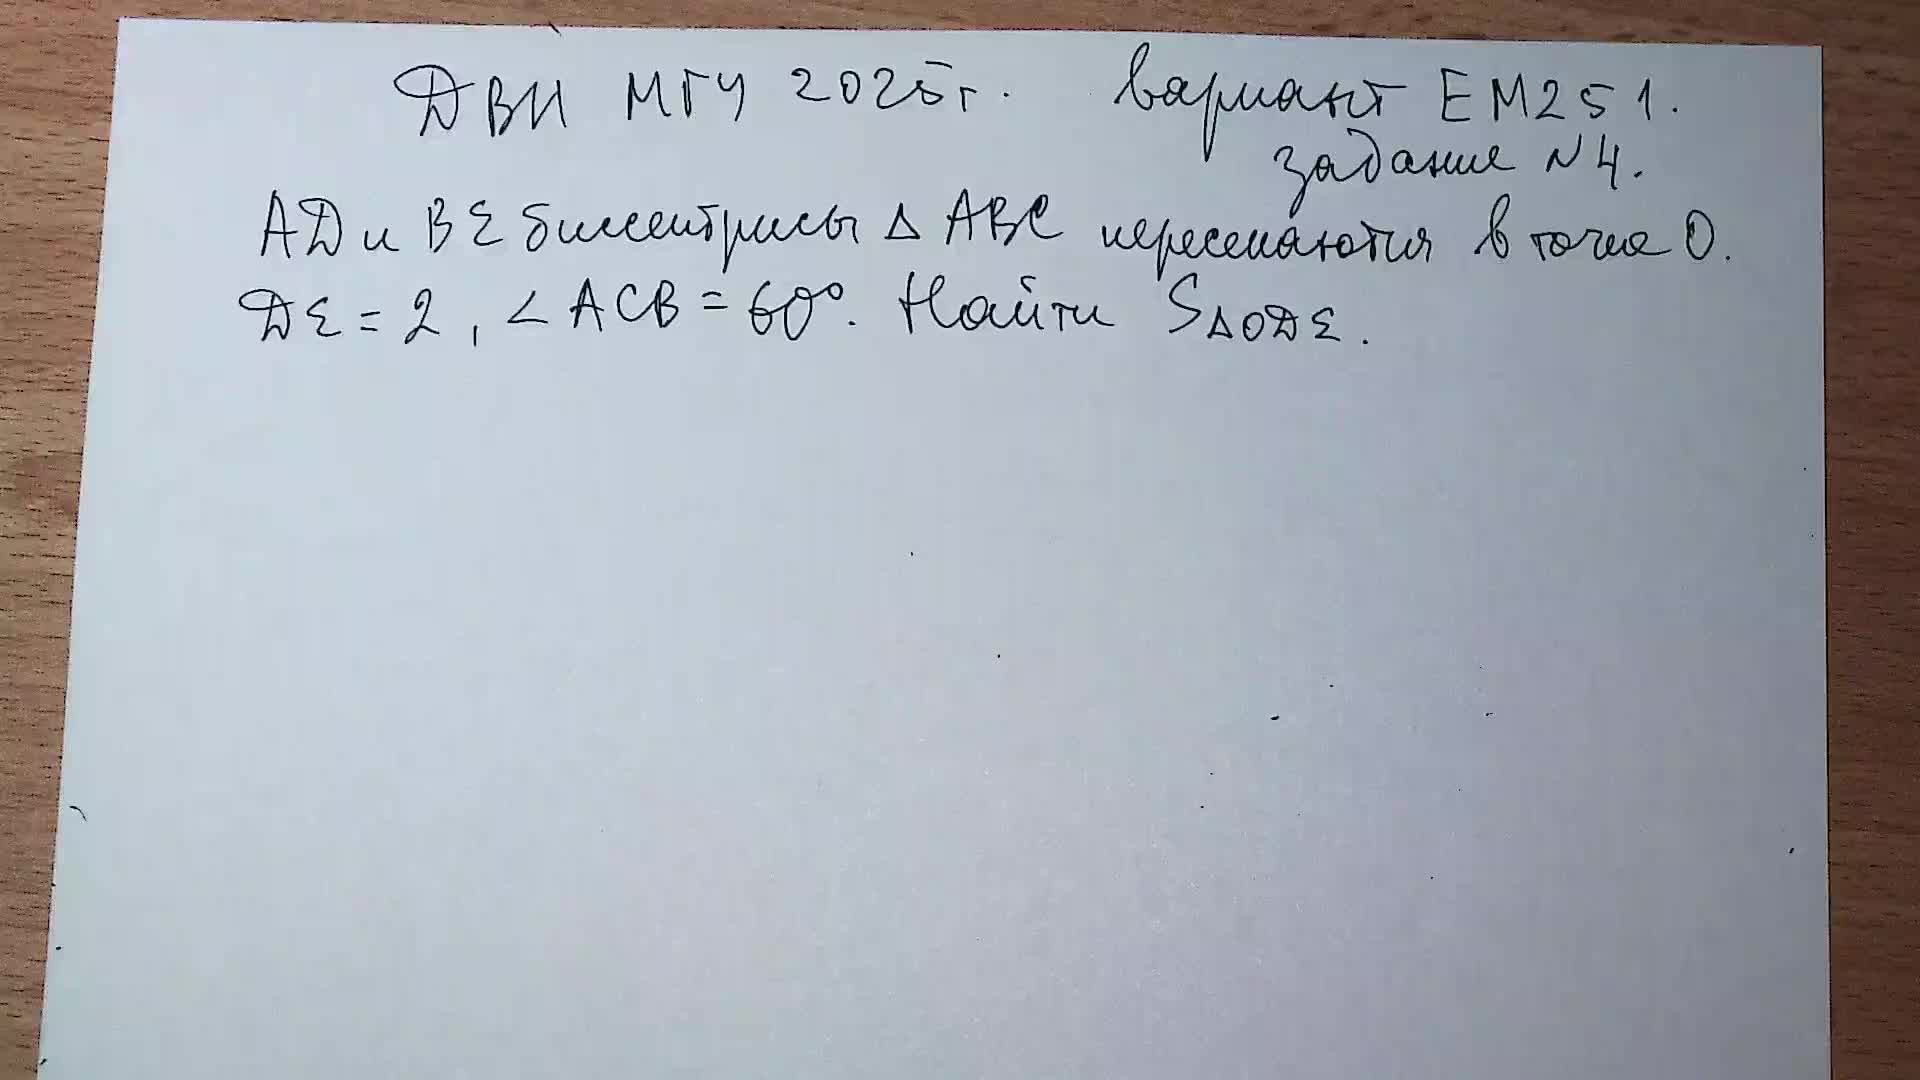 ДВИ МГУ 2025г. Вариант ЕМ251.
задание N4.
AD и BE биссектрисы △ ABC пересекаются в точке O.
DE = 2, ∠ ACB = 60°. Найти S△ODE.